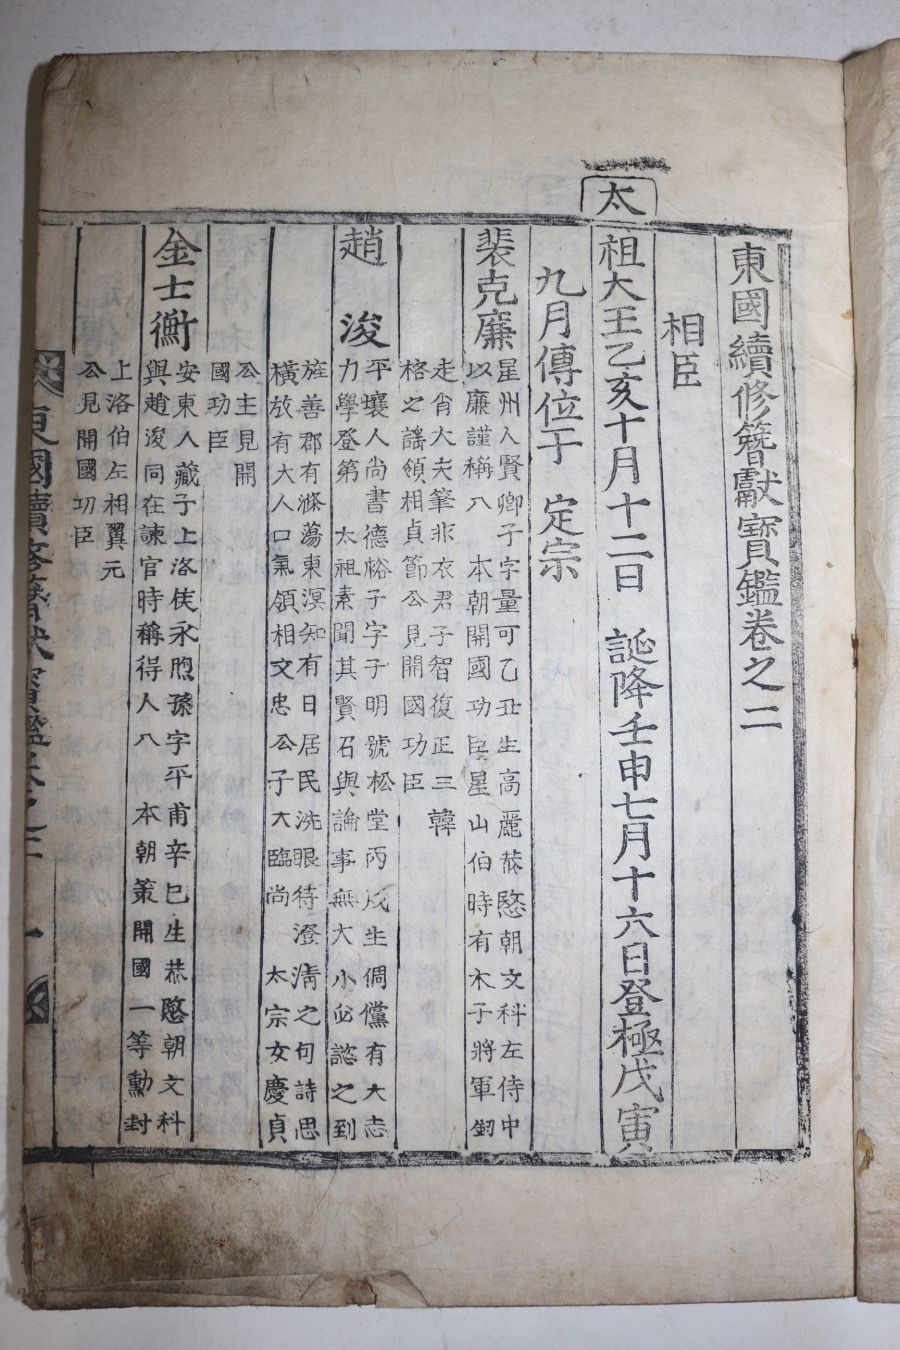 東國續修簪獻寶鑑卷之二
相臣
太
祖大王乙亥十月十二日 誕降壬申七月十六日登極戊寅
九月傳位于 定宗
裴克廉
星州人賢卿子字量可乙丑生高麗恭愍朝文科左侍中
以廉謹稱八 本朝開國功臣星山伯時有木子將軍釰
走肖大夫筆非衣君子智復正三韓
格之謠領相貞節公見開國功臣
趙 浚
平壤人尚書德裕子字子明號松堂丙戌生倜儻有大志
力學登第 太祖素聞其賢召與論事無大小必諮之到
旌善郡有滌蕩東溟知有日居民洗眼待澄淸之句詩思
橫放有大人口氣領相文忠公子大臨尚 太宗女慶貞
公主見開
國功臣
金士衡
安東人 蕆子上洛侯永煦孫字平甫辛巳生恭愍朝文科
與趙浚同在諫官時稱得人八 本朝策開國一等勳封
上洛伯左相翼元
公見開國功臣
東國續修簪獻寶鑑卷之二 一